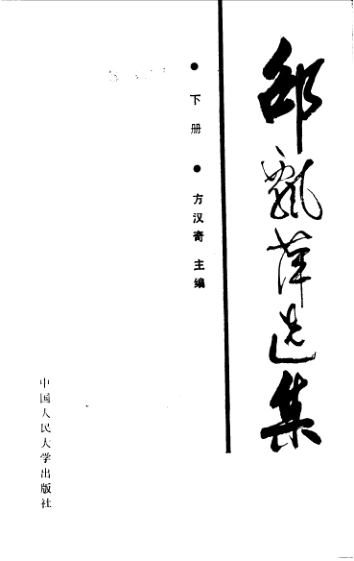 邵飘萍选集
下册
方汉奇 主编
中国人民大学出版社